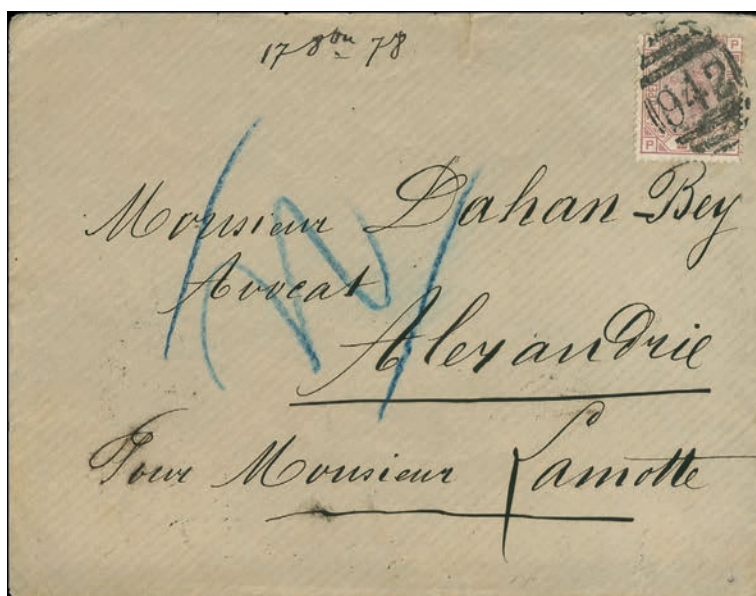 17 8bre 78
P P
942
P P
Monsieur Dahan-Bey
Avocat
Alexandrie
Pour Monsieur Lamotte